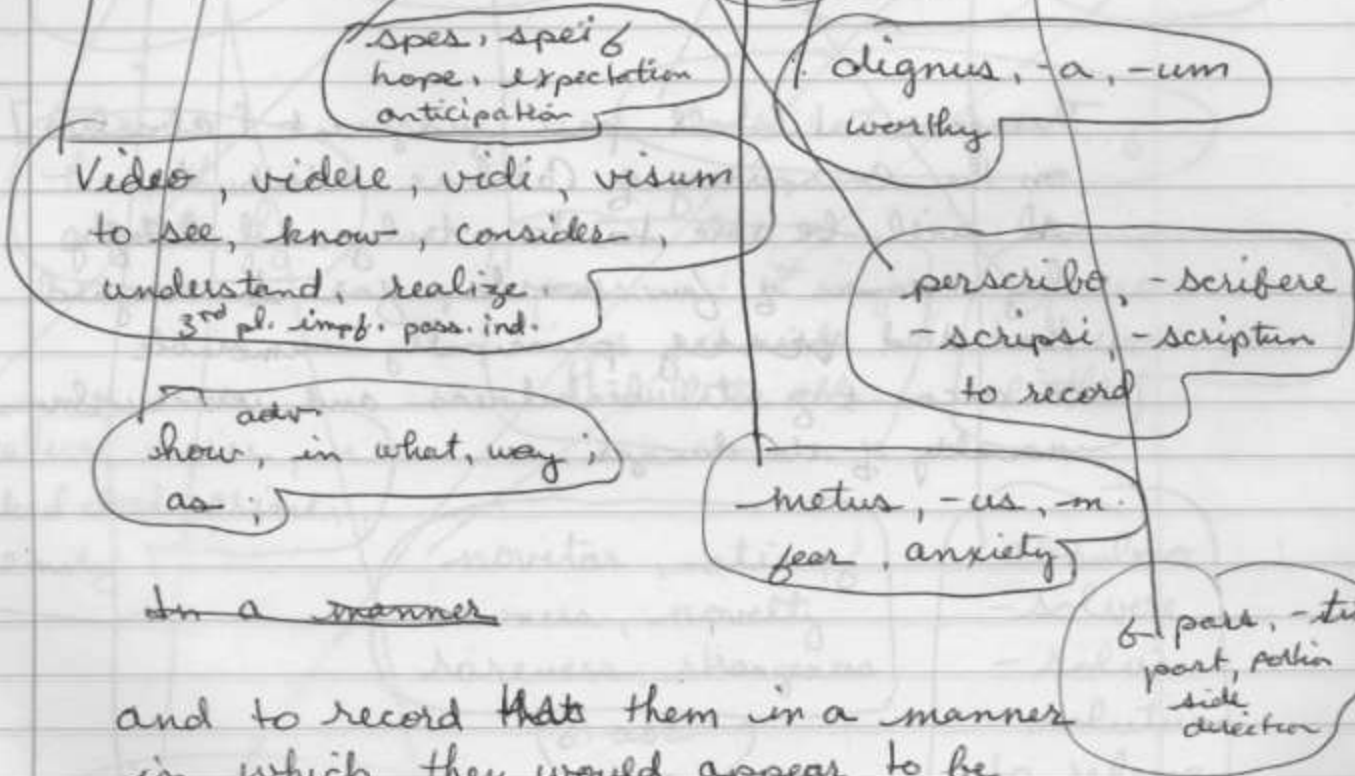 spes, spei f
hope, expectation
anticipation
dignus, -a, -um
worthy
Video, videre, vidi, visum
to see, know, consider,
understand, realize.
3rd pl. impf. pass. ind.
perscribo, -scribere
-scripsi, -scriptum
to record
adv
how, in what, way ;
as ;
metus, -us, -m.
fear, anxiety
In a manner
f pars, -ti
part, portion
side
direction
and to record them in a manner
in which they would appear to be